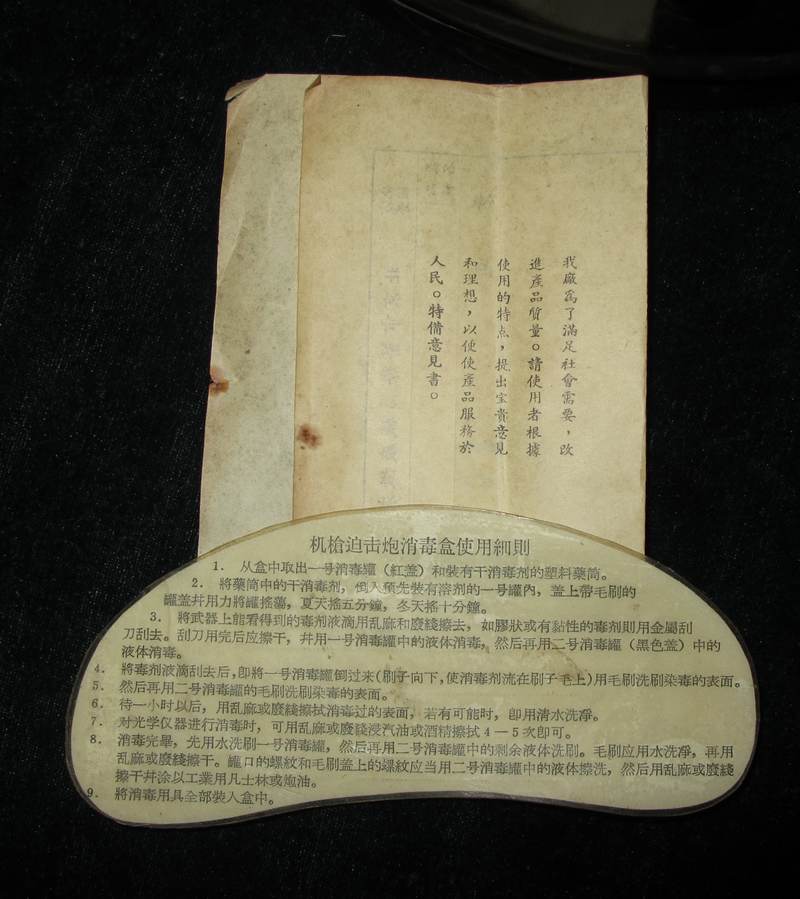 我廠爲了滿足社會需要，改
進產品質量。請使用者根據
使用的特点，提出宝貴意見
和理想，以便使產品服務於
人民。特備意見書。
机槍迫击炮消毒盒使用細則
1． 从盒中取出一号消毒罐（紅盖）和裝有干消毒剂的塑料藥筒。
2． 將藥筒中的干消毒剂，倒入預先裝有溶剂的一号罐內，盖上帶毛刷的
罐盖幷用力將罐搖蕩，夏天搖五分鐘，冬天搖十分鐘。
3． 將武器上能看得到的毒剂液滴用乱麻和廢綫擦去，如膠狀或有黏性的毒剂則用金屬刮
刀刮去。刮刀用完后应擦干，幷用一号消毒罐中的液体消毒，然后再用二号消毒罐（黑色盖）中的
液体消毒。
4． 將毒剂液滴刮去后，卽將一号消毒罐倒过来（刷子向下，使消毒剂流在刷子毛上）用毛刷洗刷染毒的表面。
5． 然后再用二号消毒罐的毛刷洗刷染毒的表面。
6． 待一小时以后，用乱麻或廢綫擦拭消毒过的表面，若有可能时，卽用清水洗净。
7． 对光学仪器进行消毒时，可用乱麻或廢綫浸汽油或酒精擦拭4—5次卽可。
8． 消毒完畢，先用水洗刷一号消毒罐，然后再用二号消毒罐中的剩余液体洗刷。毛刷应用水洗淨，再用
乱麻或廢綫擦干。罐口的螺紋和毛刷盖上的螺紋应当用二号消毒罐中的液体擦洗，然后用乱麻或廢綫
擦干幷涂以工業用凡士林或炮油。
9． 將消毒用具全部裝入盒中。